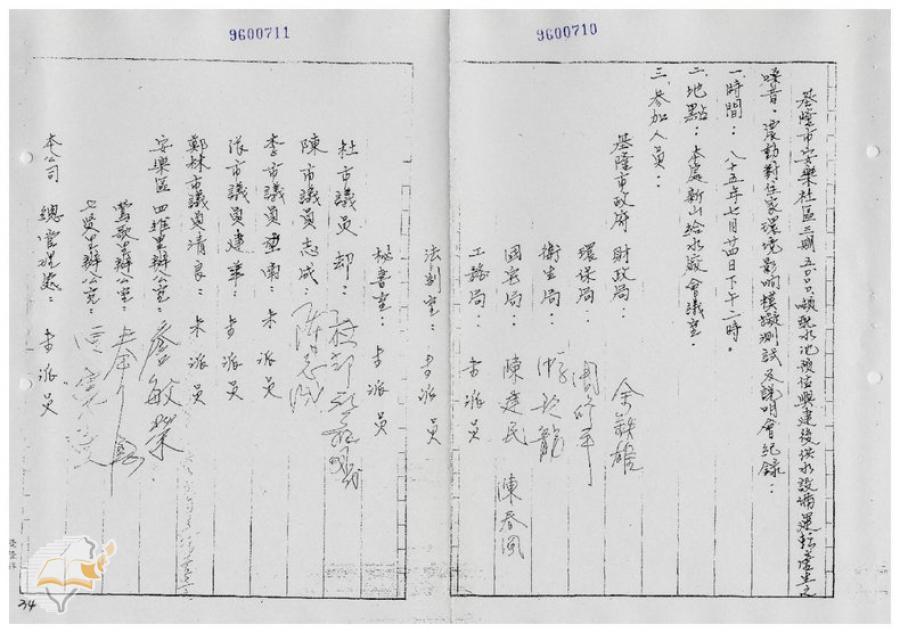 9600710
基隆市安樂社區三期五〇〇噸配水池預估興建後供水設備運轉產生之
噪音、震動對住家環境影响模擬測試及說明會紀錄：
一、時間：八十五年七月廿四日下午二時。
二、地點：本處新山給水廠會議室。
三、參加人員：
基隆市政府 財政局：余鉄雄
環保局：
衛生局：
國宅局：陳建民 陳春風
工務局：未派員
法制室：未派員
秘書室：未派員
9600711
杜市議員 却：
陳市議員志成：陳志成
李市議員 ：未派員
張市議員建華：未派員
鄭林市議員清良：未派員
安樂區 四維里辦公室：詹敏榮
鶯歌里辦公室：
七賢里辦公室：
本公司 總管理處：未派員
34